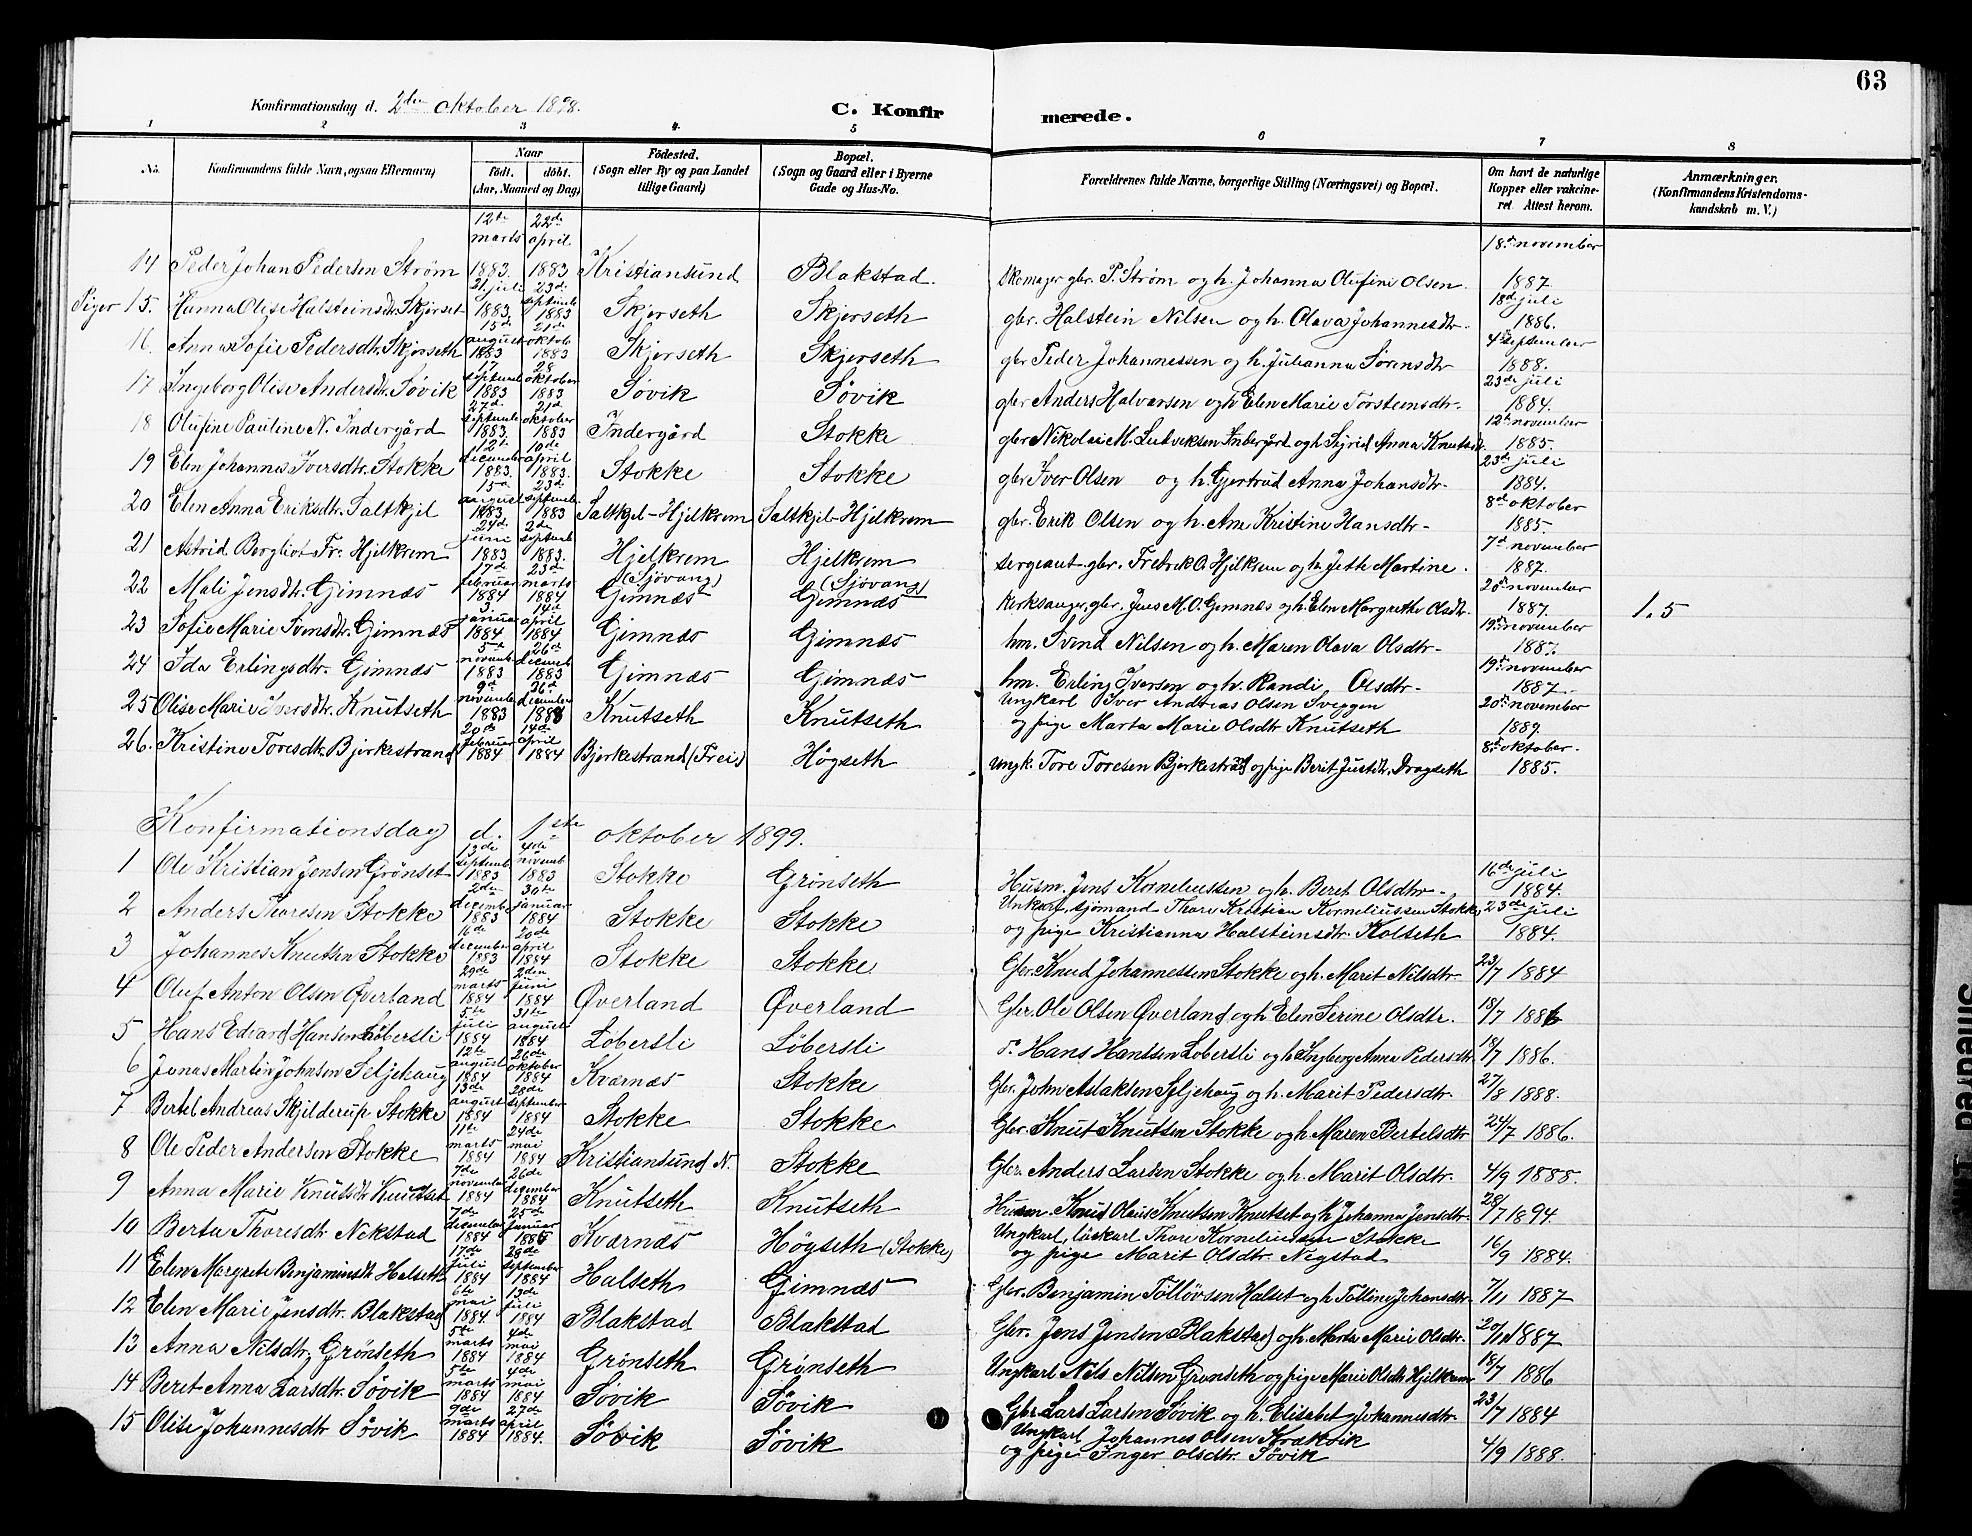 63
Konfirmationsdag d. 2den oktober 1898.
C. Konfirmerede.
1 2 3 4. 5 6 7 8
No. Konfirmandens fulde Navn, ogsaa Efternavn) Naar født. døbt. (Aar, Maaned og Dag) Fødested. (Sogn eller By og paa Landet tillige Gaard) Bopæl. (Sogn og Gaard eller i Byerne Gade og Hus-No. Forældrenes fulde Navne, borgerlige Stilling (Næringsvei) og Bopæl. Om havt de naturlige Kopper eller vakcineret. Attest herom. Anmærkninger. (Konfirmandens Kristendomskundskab m. V.)
14 Peder Johan Pedersen Strøm 12te marts 1883. 22de april 1883 Kristiansund Blakstad. Skomager gbr. P. Strøm og h. Johanna Olufine Olsen 18de november 1887.
Piger 15. Hanna Olise Halsteinsdtr. Skjerset 21. juli 1883. 23de septemb. 1883 Skjerseth Skjerseth gbr. Halstein Nilsen og h. Olava Johannesdtr. 18de juli 1886.
16. Anna Sofie Pedersdtr. Skjerseth 15de august 1883 21de oktob 1883 Skjerseth Skjerseth gbr Peder Johannessen og h. Julianna Sørensdtr 4de september 1888.
17 Ingeborg Olise Andersdtr. Søvik 17 septemb. 1883 28 oktober 1883 Søvik Søvik gbr Anders Halvorsen og h Elen Marie Torsteinsdtr. 23de juli 1884.
18 Olufine Pauline N. Indergård 27de septembe 1883. 21de oktober 1883 Indergård Stokke gbr Nikolai M. Ludviksen Indergård og h Sigrid Anna Knutsdtr. 12te november 1885.
19 Elen Johannes Iversdtr. Stokke 12te december 1883. 10de april 1883. Stokke Stokke gbr Iver Olsen og h. Gjertrud Anna Johansdtr. 23de juli 1884.
20 Elen Anna Eriksdtr. Saltkjel 15de august 1883 23de septemb. 1883 Saltkjel-Hjelkrem Saltkjel-Hjelkrem gbr. Erik Olsen og h. Ane Kristine Hansdtr. 8de oktober 1885.
21 Astrid Bergliot Fr. Hjelkrem 24de juni 1883 2de septemb 1883. Hjelkrem Hjelkrem sergeant-gbr. Fredrik O. Hjelkrem og h. Jeth Martine. 7de november 1887.
22 Mali Jensdtr. Gimnæs 17de februar 1884 23de marts 1884 (Sjøvang) Gimnæs (Sjøvang) Gimnæs Kirksanger, gbr. Jens M. O. Gimnæs og h. Elen Margrethe Olsdtr. 20de november 1887. 1.5
23 Sofie Marie Svensdtr. Gimnæs 3. januar 1884 14de april 1884 Gimnæs Gimnæs hm. Svend Nilsen og h. Maren Olava Olsdtr. 19de november 1887.
24 Ida Erlingsdtr. Gimnæs 5te novemb 1883 26de decemb 1883 Gimnæs Gimnæs hm. Erling Iversen og h. Randi Olsdtr. 19de november 1887.
25 Olise Marie Iversdtr. Knutseth 9de novembe 1883 26de december 1883 Knutseth Knutseth Ungkarl Iver Andreas Olsen Sveggen og pige Marta Marie Olsdtr Knutseth 20de november 1887.
26. Kristine Toresdtr. Bjerkestrand 20de februar 1884 14de april 1884 Bjerkestrand (Frei) Høgseth Ungk. Tore Toresen Bjerkestrand og pige Berit Justdtr. Dragseth 8de oktober. 1885.
Konfirmationsdag d. 1ste oktober 1899.
1 Ole Kristian Jensen Grønset 13de septemb. 1883 4de novemb 1883 Stokke Grønseth Husm. Jens Korneliussen og h. Beret Olsdtr. 16de juli 1884.
2 Anders Thoresen Stokke 2den decembe 1883 30te januar 1884 Stokke Stokke Unkarl, sjømand Thore Kristian Korneliussen Stokke og pige Kristianna Halsteinsdtr. Kolseth 23de juli 1884.
3 Johannes Knutsen Stokke 16de december 1883 20de april 1884 Stokke Stokke Gbr. Knud Johannessen Stokke og h. Marit Nilsdtr. 23/7 1884
4 Oluf Anton Olsen Øverland 29de marts 1884 2den juni 1884 Øverland Øverland Gbr. Ole Olsen Øverland og h Elen Serine Olsdtr. 18/7 1886
5 Hans Edvard Hansen Løbersli 5te juli 1884 31te august 1884 Løbersli Løbersli do Hans Hansen Løbersli og h Ingborg Anna Pedersdtr. 18/7 1886.
6 Jonas Martin Johnsen Seljehaug 12te august 1884 26de oktober 1884 Kværnæs Stokke Gbr. John Aslaksen Seljehaug og h. Marit Pedersdtr. 27/8 1888.
7 Bertel Andreas Skjilderup Stokke 13de august 1884 28de september 1884 Stokke Stokke Gbr. Knut Knutsen Stokke og h Maren Bertelsdtr 24/7 1886.
8 Ole Peder Andersen Stokke 11te marts 1884 24de mai 1884 Kristiansund N. Stokke Gbr. Anders Larsen Stokke og h. Marit Olsdtr. 4/9 1888.
9 Anna Marie Knutsdtr Knutset 7de november 1884 26de december 1884 Knutseth Knutseth Husm. Knud Olaus Knutsen Knutset og h Johanna Jensdtr. 28/7 1894.
10 Berta Thoresdtr Nekstad 7de december 1884 25de januar 1885 Kværnæs Høgseth (Stokke) Ungkarl, løskarl Thore Korneliussen Stokke og pige Marit Olsdtr. Negstad 16/9 1884.
11 Elen Margrete Benjaminsdtr Halseth 17de juli 1884 28de september 1884 Halseth Gimnæs Gbr. Benjamin Tølløvsen Halset og h Tølline Johansdtr. 7/11 1887
12 Elen Marie Jensdtr. Blakstad 6te mai 1884. 13de juli 1884 Blakstad Blakstad Gbr. Jens Jensen Blakstad og h. Marta Marie Olsdtr. 20/11 1887
13 Anna Nilsdtr. Grønseth 5te marts 1884 4de mai 1884 Grønseth Grønseth Ungkarl Nils Nilsen Grønseth og pige Marie Olsdtr Hjelkrem 18/7 1886
14 Beret Anna Larsdtr. Søvik 5te marts 1884 4de mai 1884 Søvik Søvik Gbr. Lars Larsen Søvik og h. Elisabet Johannesdtr. 23/7 1884
15 Olise Johannesdtr Søvik 9de marts 1884 27de april 1884. Søvik Søvik Ungkarl Johannes Olsen Kræksvik og pige Inger Olsdtr. Søvik 4/9 1888.